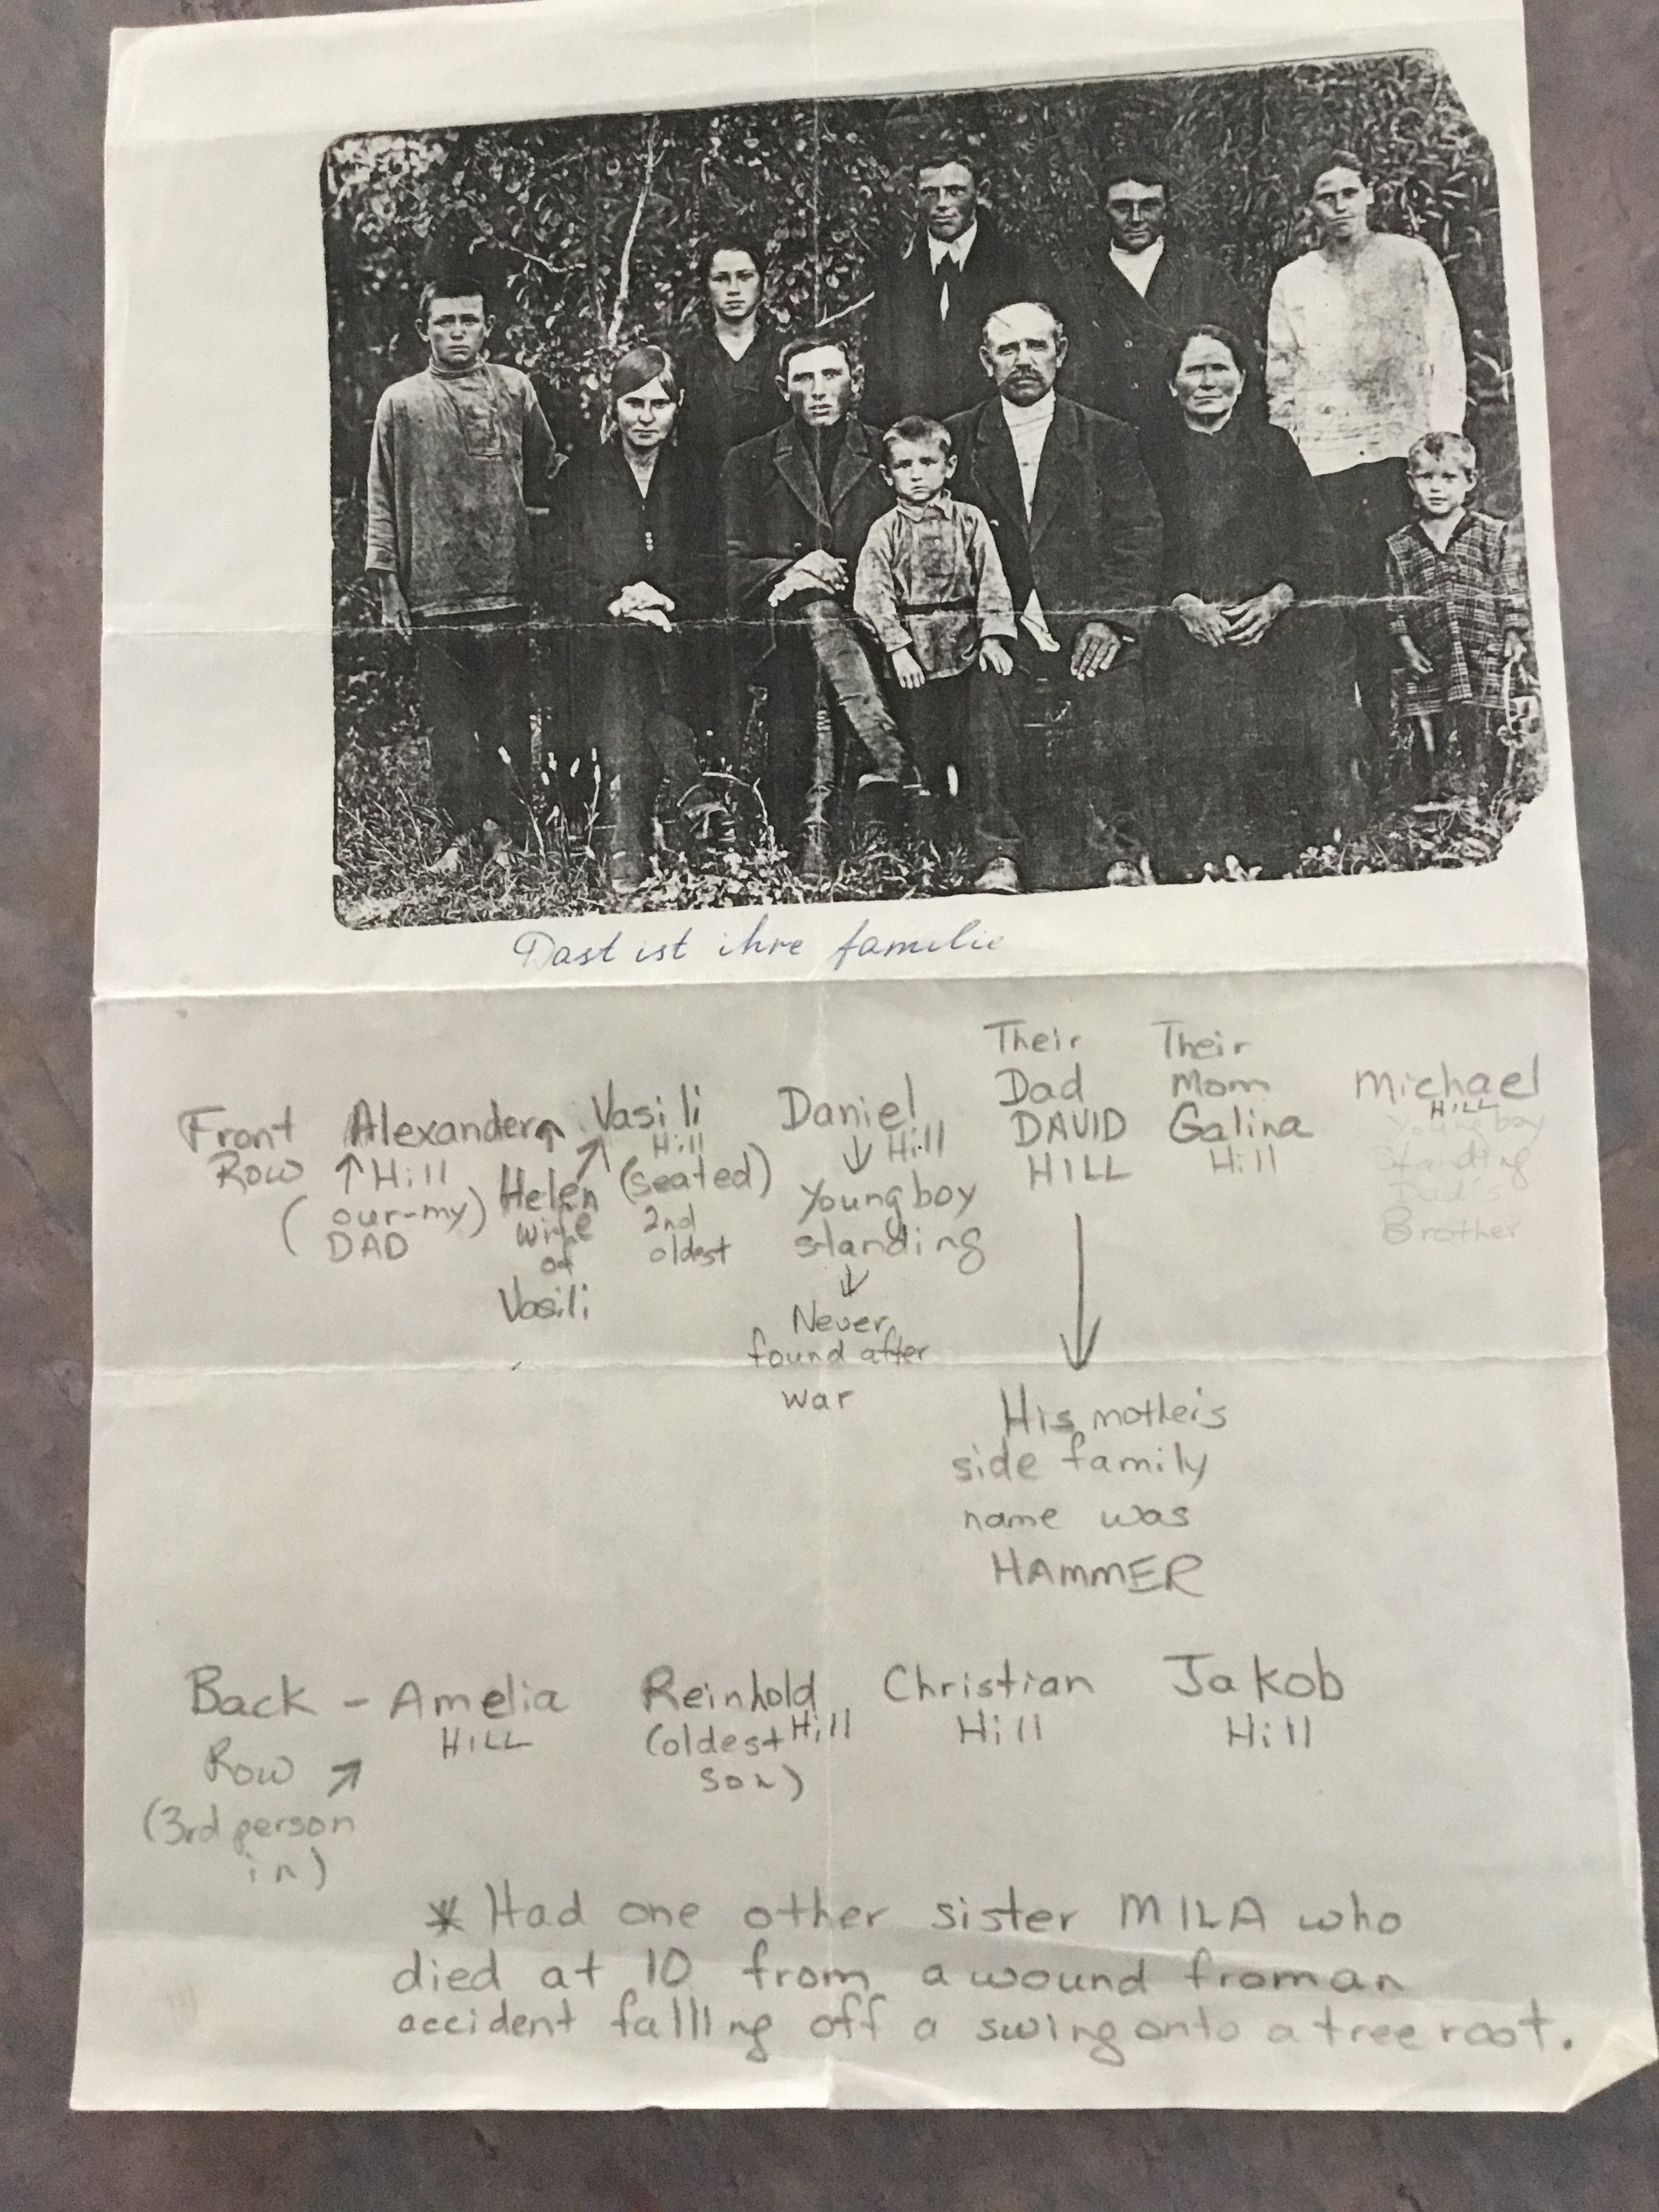 Dast ist ihre familie
Their Their
Dad Mom Michael
Front Alexander Vasili Daniel DAVID Galina HILL
Row Hill Hill Hill HILL Hill Young boy
(our-my) Helen (seated) Young boy Standing
DAD wife 2nd standing Dad's
of oldest Brother
Vasili Never
found after
war
His mother's
side family
name was
HAMMER
Back - Amelia Reinhold Christian Jakob
HILL Hill Hill Hill
Row (oldest
son)
(3rd person
in)
* Had one other sister MILA who
died at 10 from a wound from an
accident falling off a swing onto a tree root.